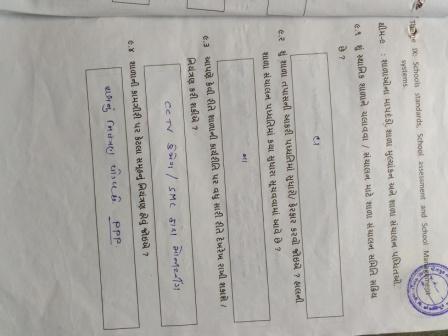 Theme IX: Schools standards, School assessment and School Management systems.
થીમ-૯ : શાળાઓના માપદંડો, શાળા મૂલ્યાંકન અને શાળા સંચાલન પધ્ધતિઓ.
૯.૧ શું સ્થાનિક શાળાને ચલાવવા / સંચાલન માટે શાળા સંચાલન સમિતિ સક્રિય છે ?
હા
૯.૨ શું શાળા તપાસની આકરી પધ્ધતિમાં સુધારો/ ફેરફાર કરવો જોઇએ ? હાલની શાળા સંચાલન પધ્ધતિમાં કયા સુધારા સૂચવવામાં આવે છે ?
ના
૯.૩ આપણે કેવી રીતે શાળાની કાર્યરીતિ પર વધુ સારી રીતે દેખરેખ રાખી શકાશે / નિયંત્રણ કરી શકીએ ?
CCTV કેમેરા / SMC દ્વારા
૯.૪ શાળાની કામગીરી પર કેટલા સમૂહનું નિયંત્રણ હોવું જોઇએ ?
PPP